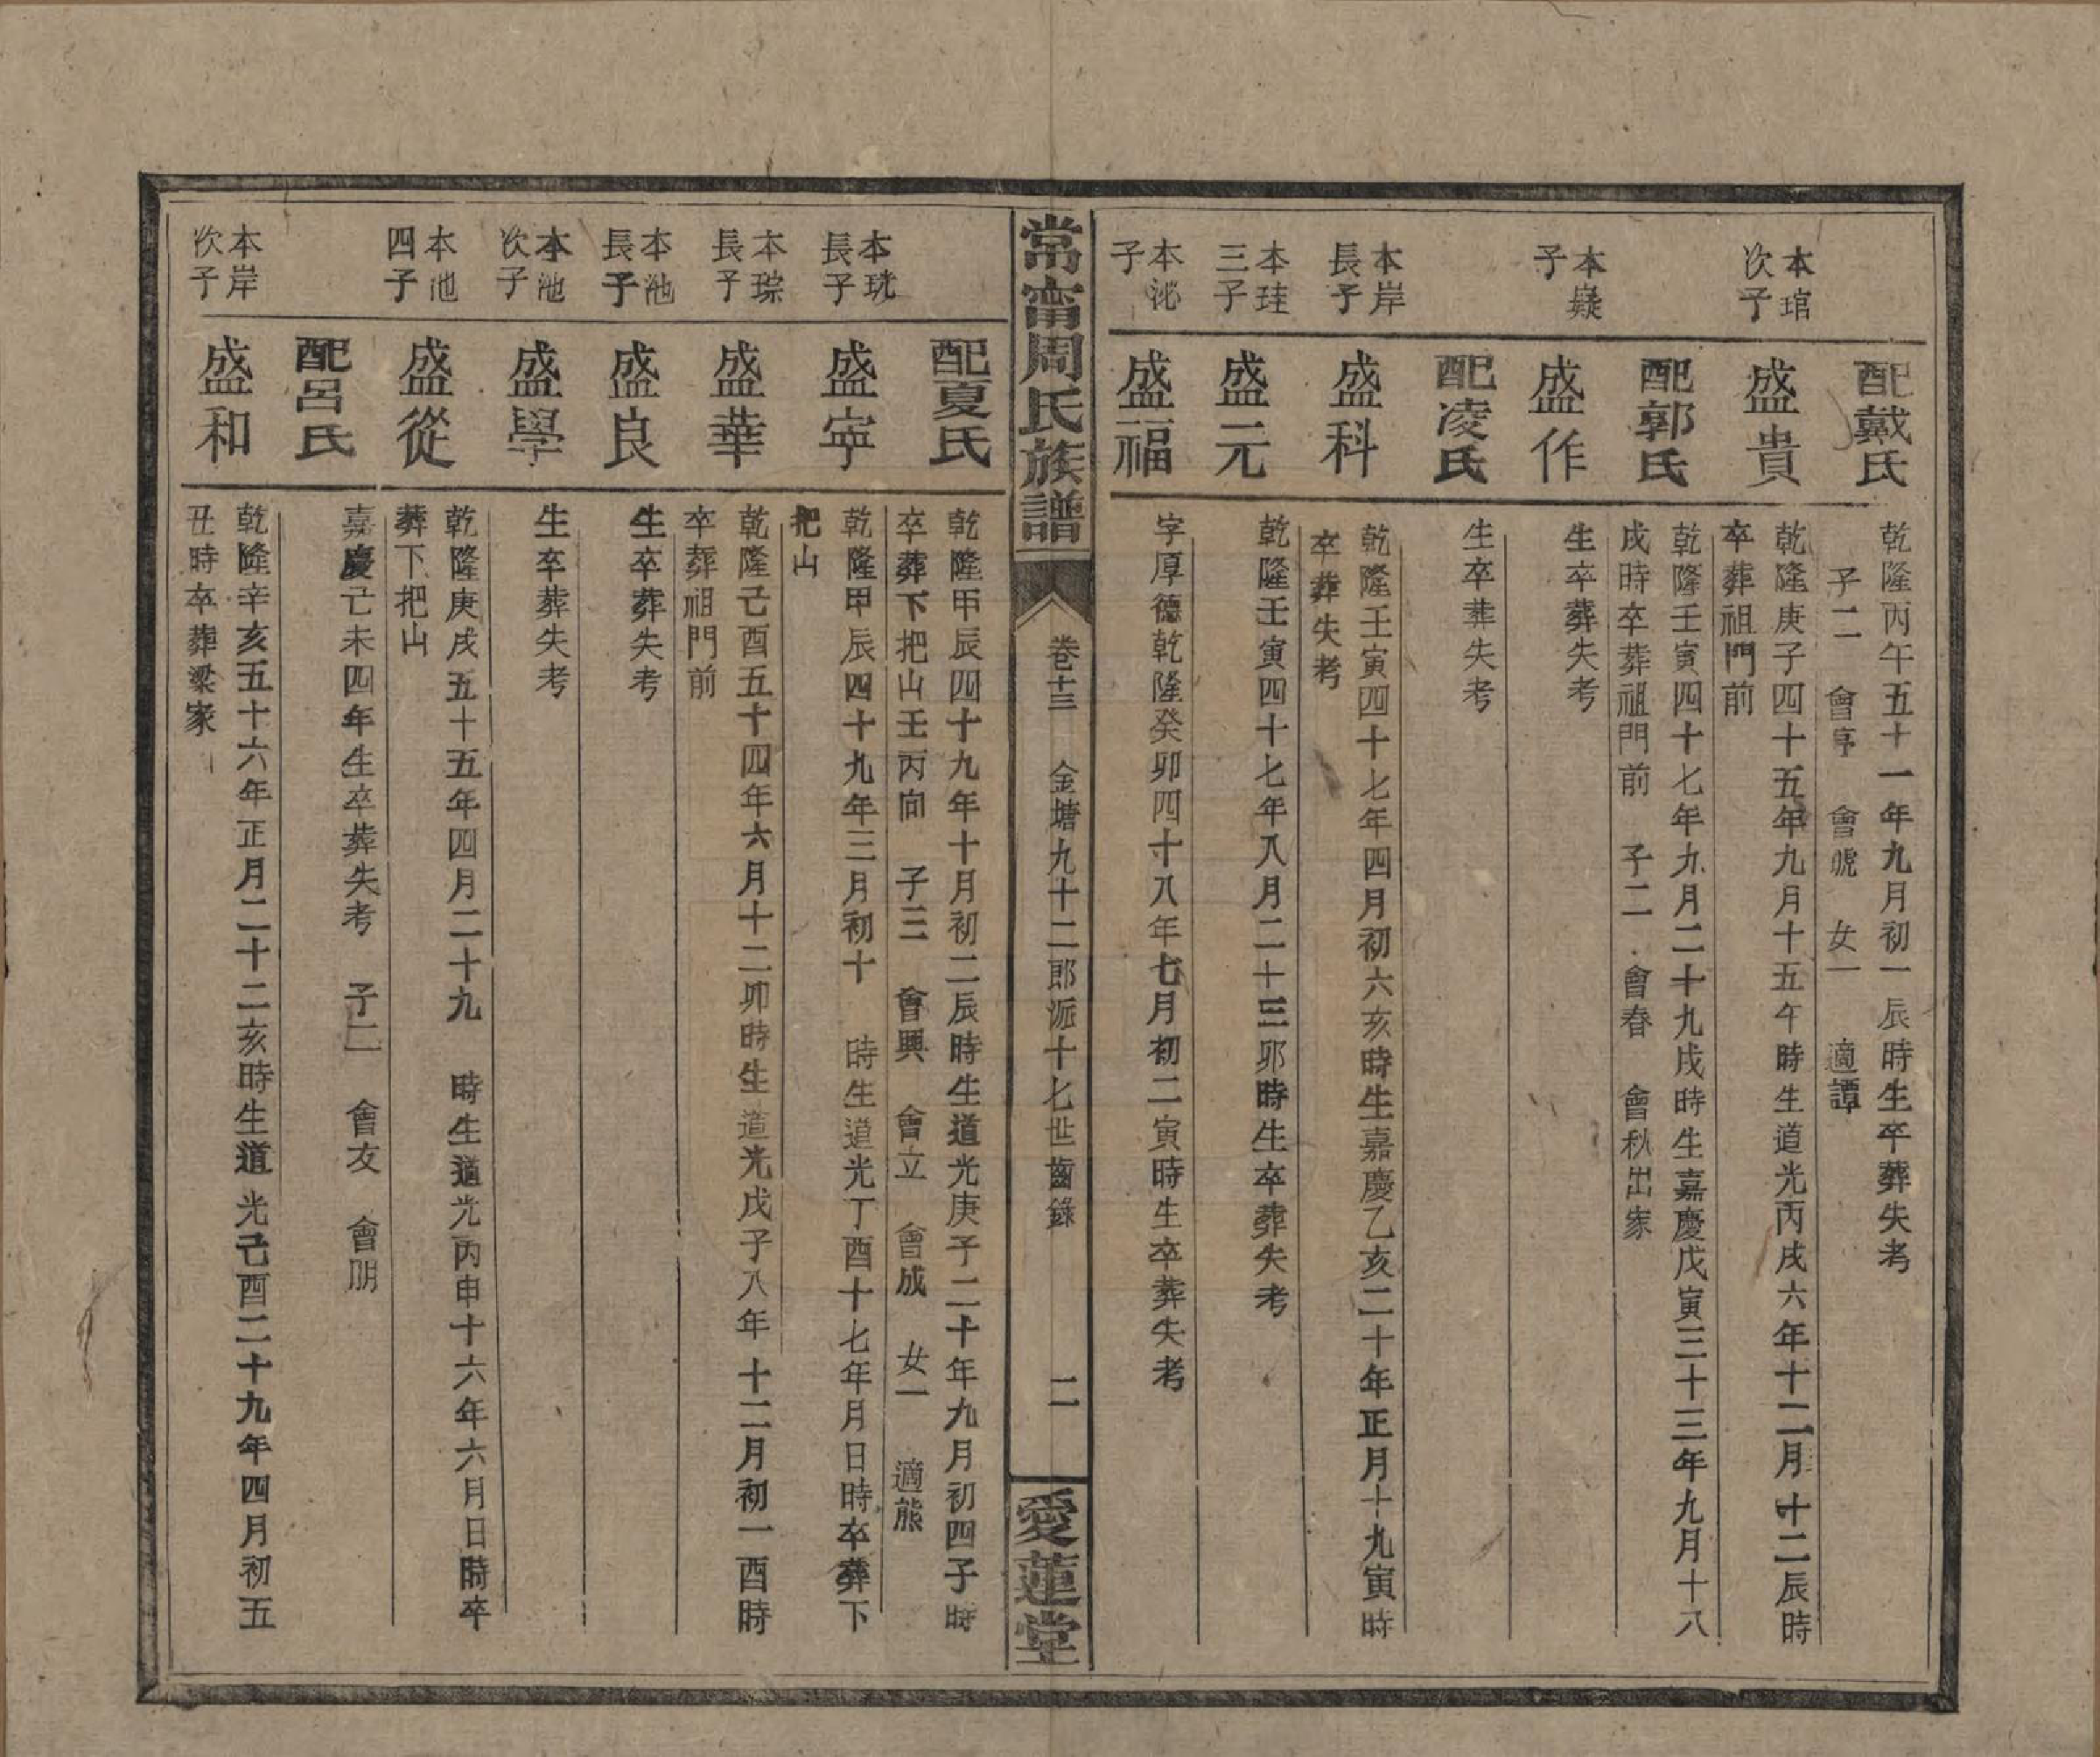 配戴氏
乾隆丙午五十一年九月初一辰時生卒葬失考
子二　會享　會號　女一　適譚
本琯
次子
盛貴
乾隆庚子四十五年九月十五午時生道光丙戌六年十二月十二辰時
卒葬祖門前
配郭氏
乾隆壬寅四十七年九月二十九戌時生嘉慶戊寅三十三年九月十八
戌時卒葬祖門前　子二　會春　會秋出家
本嶷
子
盛作
生卒葬失考
配凌氏
生卒葬失考
本岸
長子
盛科
乾隆壬寅四十七年四月初六亥時生嘉慶乙亥二十年正月十九寅時
卒葬失考
本珪
三子
盛元
乾隆壬寅四十七年八月二十三卯時生卒葬失考
本沘
子
盛福
字厚德乾隆癸卯四十八年七月初二寅時生卒葬失考
常甯周氏族譜
卷十三　金塘九十二郎派十七世齒錄
二
愛蓮堂
配夏氏
乾隆甲辰四十九年十月初二辰時生道光庚子二十年九月初四子時
卒葬下把山壬丙向　子三　會興　會立　會成　女一　適熊
本珖
長子
盛寧
乾隆甲辰四十九年三月初十　時生道光丁酉十七年月日時卒葬下
把山
本琮
長子
盛華
乾隆己酉五十四年六月十二卯時生道光戊子八年十二月初一酉時
卒葬祖門前
本池
長子
盛良
生卒葬失考
本池
次子
盛學
生卒葬失考
本池
四子
盛從
乾隆庚戌五十五年四月二十九　時生道光丙申十六年六月日時卒
葬下把山
配呂氏
嘉慶己未四年生卒葬失考　子二　會友　會朋
本岸
次子
盛和
乾隆辛亥五十六年正月二十二亥時生道光己酉二十九年四月初五
丑時卒葬梁家